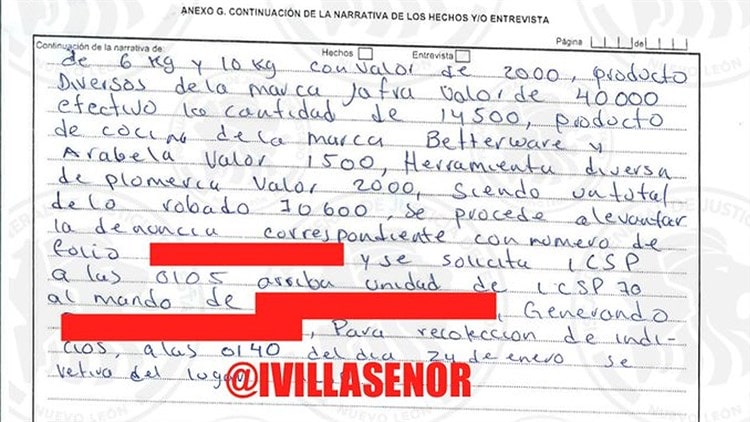 ANEXO G. CONTINUACIÓN DE LA NARRATIVA DE LOS HECHOS Y/O ENTREVISTA
Página de
Continuación de la narrativa de: Hechos Entrevista
de 6 kg y 10 kg con valor de 2000, producto
Diversos de la marca Jafra valor de 40000
efectivo la cantidad de 14500, producto
de cocina de la marca Betterware y
Arabela valor 1500, Herramienta diversa
de plomeria valor 2000, siendo un total
de lo robado 70600, se procede a levantar
la denuncia correspondiente con numero de
folio y se solicita ICSP
a las 0105 arriba unidad de ICSP 70
al mando de , Generando
, Para recoleccion de indi-
cios, a las 0140 del dia 24 de enero se
retira del lugar
@IVILLASENOR
NUEVO LEÓN